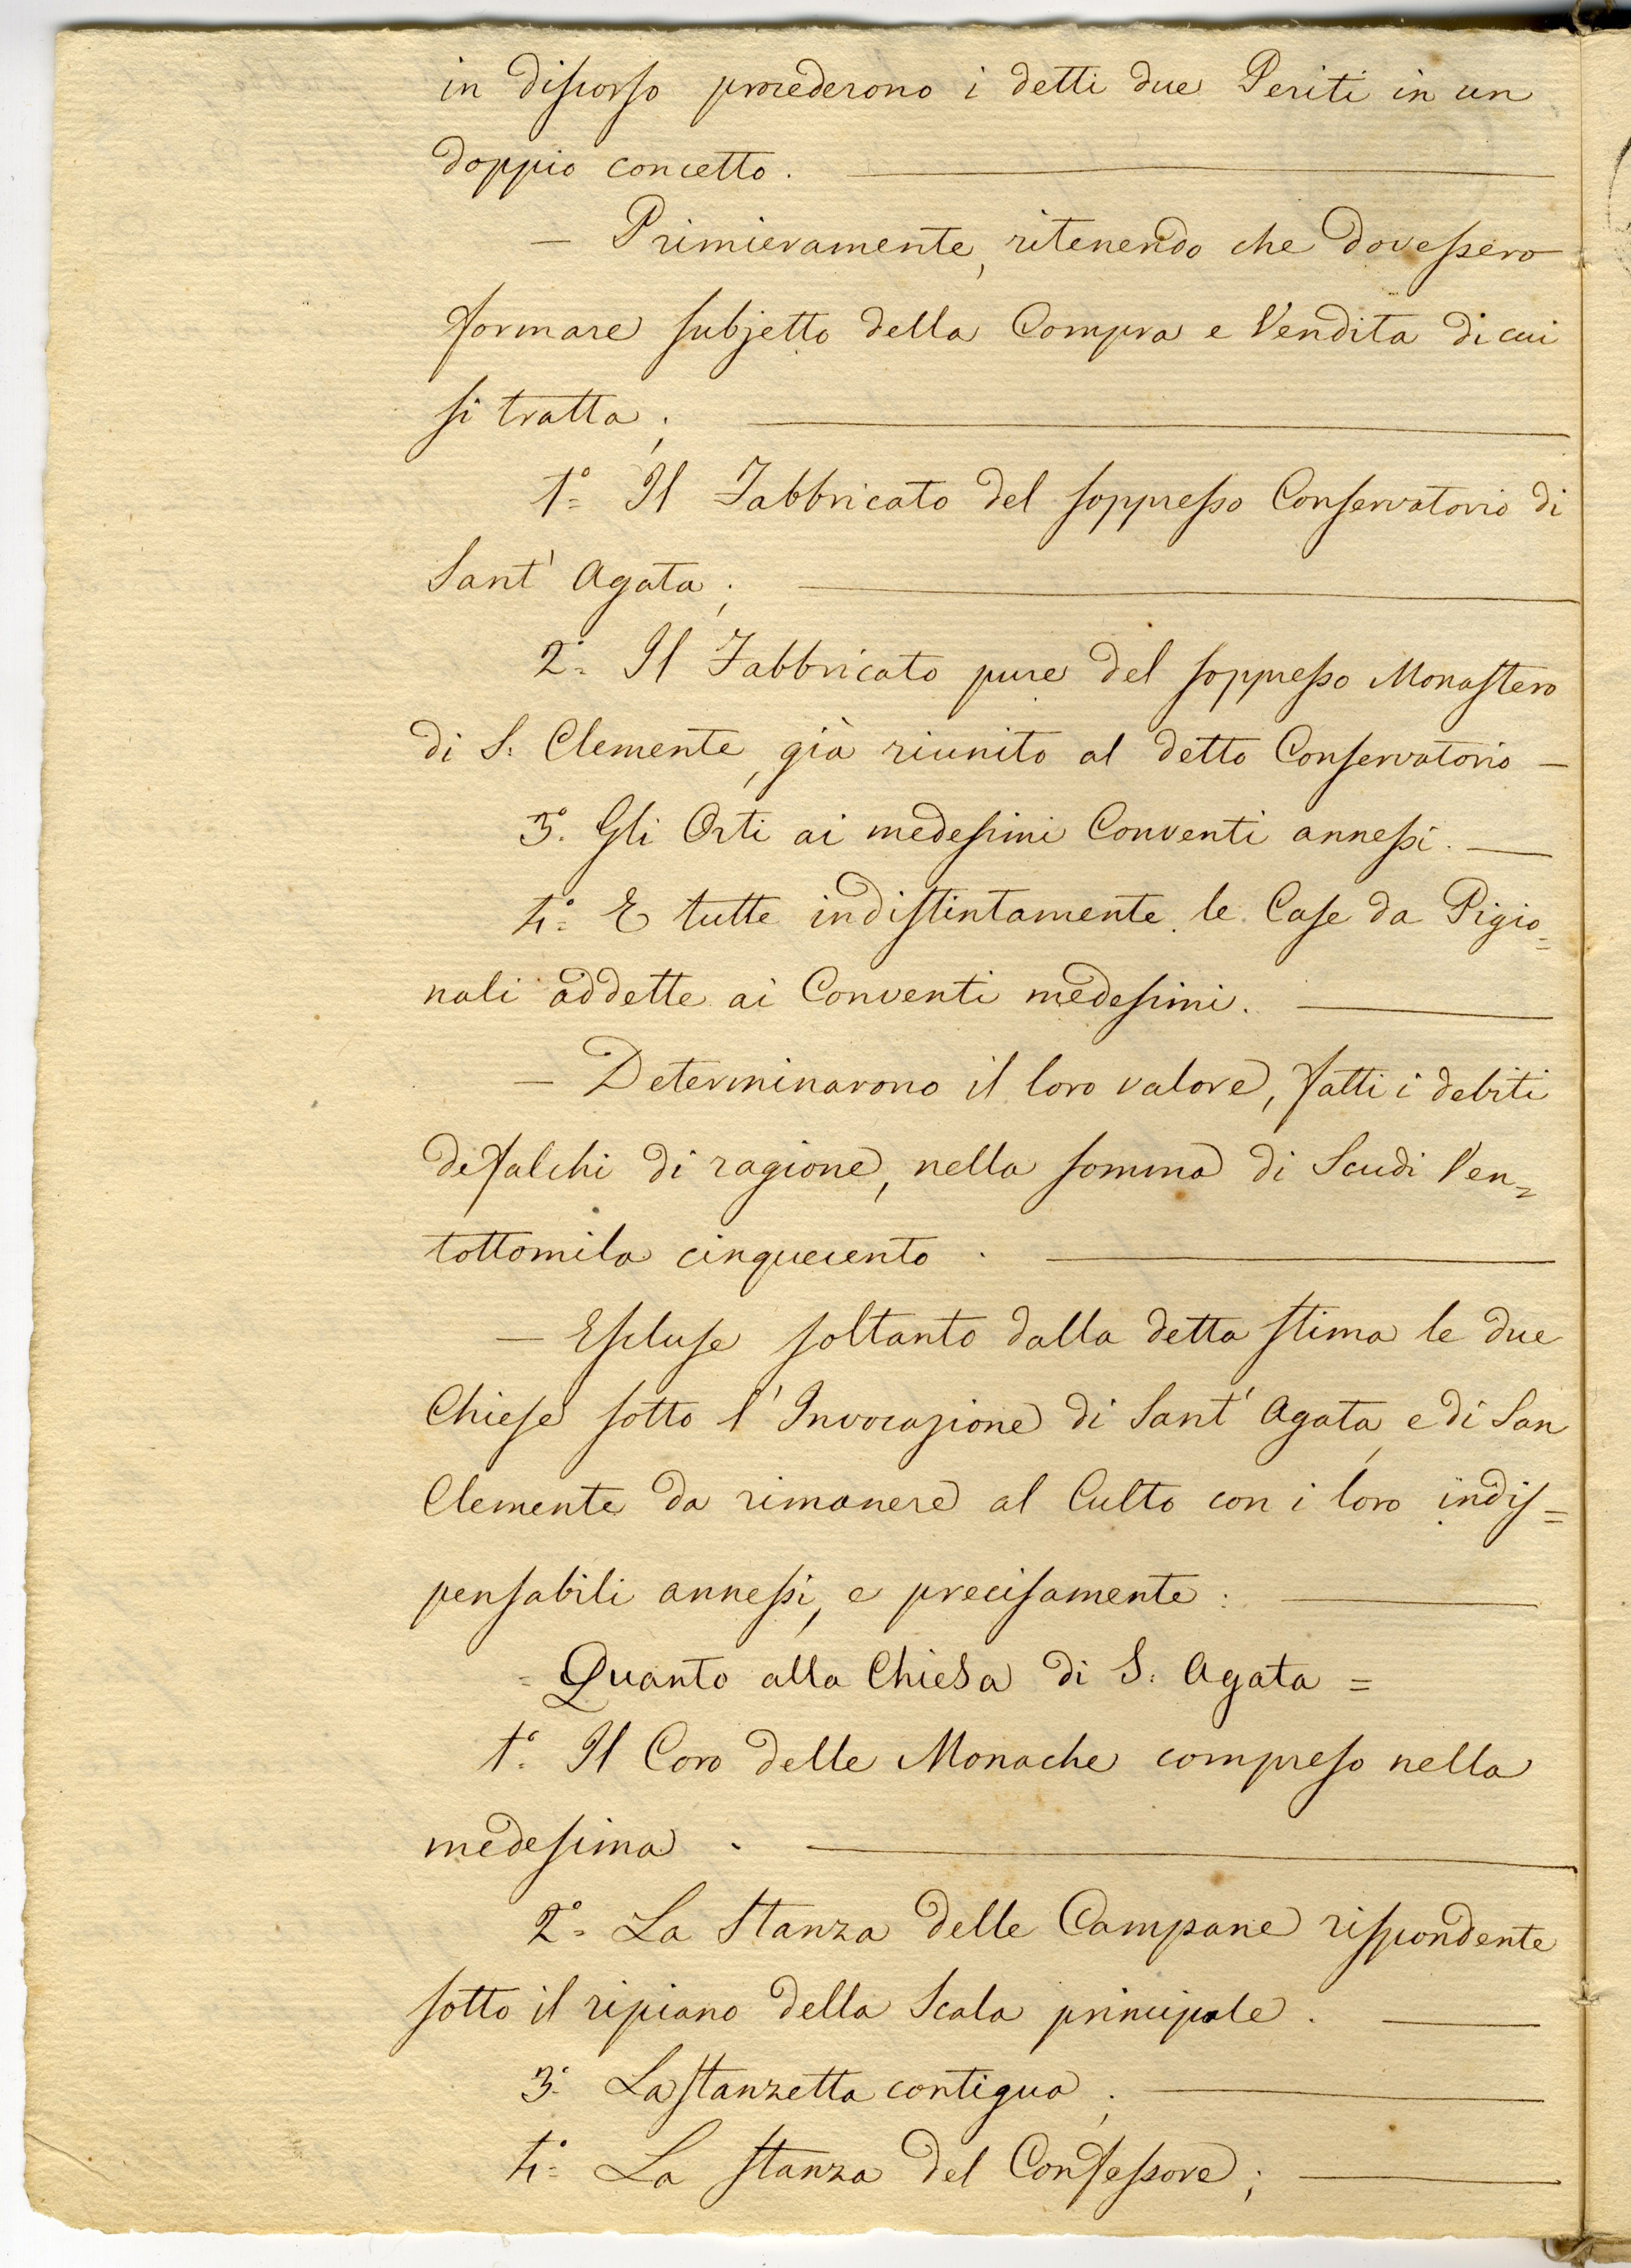 in discorso procederono i detti due Periti in un
doppio concetto.
— Primieramente, ritenendo che dovessero
formare subjetto della Compra e Vendita di cui
si tratta;
1.º Il Fabbricato del soppresso Conservatorio di
Sant' Agata;
2.º Il Fabbricato pure del soppresso Monastero
di S. Clemente, già riunito al detto Conservatorio —
3.º Gli Orti ai medesimi Conventi annessi. —
4.º E tutte indistintamente le Case da Pigio=
nali addette ai Conventi medesimi.
— Determinarono il loro valore, fatti i debiti
defalchi di ragione, nella somma di Scudi Ven=
tottomila cinquecento.
— Escluse soltanto dalla detta stima le due
Chiese sotto l'Invocazione di Sant' Agata, e di San
Clemente da rimanere al Culto con i loro indis=
pensabili annessi, e precisamente:
= Quanto alla Chiesa di S. Agata =
1.º Il Coro delle Monache compreso nella
medesima.
2.º La Stanza delle Campane rispondente
sotto il ripiano della Scala principale.
3.º La stanzetta contigua;
4.º La stanza del Confessore;